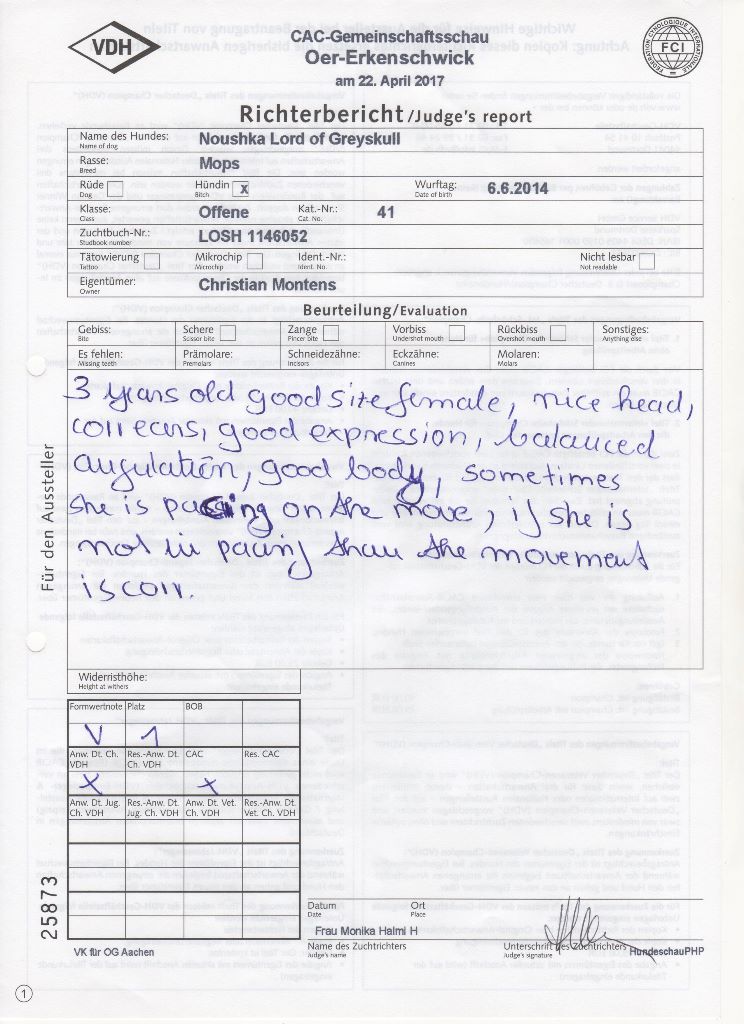 VDH
CAC-Gemeinschaftsschau
Oer-Erkenschwick
am 22. April 2017
FEDERATION CYNOLOGIQUE INTERNATIONALE
FCI
Richterbericht /Judge's report
Name des Hundes: Noushka Lord of Greyskull
Name of dog
Rasse: Mops
Breed
Rüde Hündin x Wurftag: 6.6.2014
Dog Bitch Date of birth
Klasse: Offene Kat.-Nr.: 41
Class Cat. No.
Zuchtbuch-Nr.: LOSH 1146052
Studbook number
Tätowierung Mikrochip Ident.-Nr.: Nicht lesbar
Tattoo Microchip Ident. No. Not readable
Eigentümer: Christian Montens
Owner
Beurteilung/Evaluation
Gebiss: Schere Zange Vorbiss Rückbiss Sonstiges:
Bite Scissor bite Pincer bite Undershot mouth Overshot mouth Anything else
Es fehlen: Prämolare: Schneidezähne: Eckzähne: Molaren:
Missing teeth Premolars Incisors Canines Molars
Für den Aussteller
3 years old good site female, nice head,
corr ears, good expression, balanced
angulation, good body, sometimes
she is pacing on the move, if she is
not in pacing than the movement
is corr.
Widerristhöhe:
Height at withers
Formwertnote Platz BOB
V 1
Anw. Dt. Ch. VDH Res.-Anw. Dt. Ch. VDH CAC Res. CAC
X X
Anw. Dt. Jug. Ch. VDH Res.-Anw. Dt. Jug. Ch. VDH Anw. Dt. Vet. Ch. VDH Res.-Anw. Dt. Vet. Ch. VDH
25873
Datum Ort
Date Place
Frau Monika Halmi H
Name des Zuchtrichters Unterschrift des Zuchtrichters HundeschauPHP
Judge's name Judge's signature
VK für OG Aachen
1